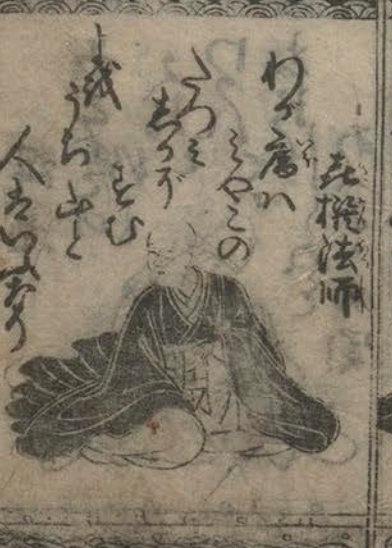 喜撰法師
わが庵ハ
みやこの
たつミ
しかぞ
すむ
よを
うぢ山と
人はいふなり